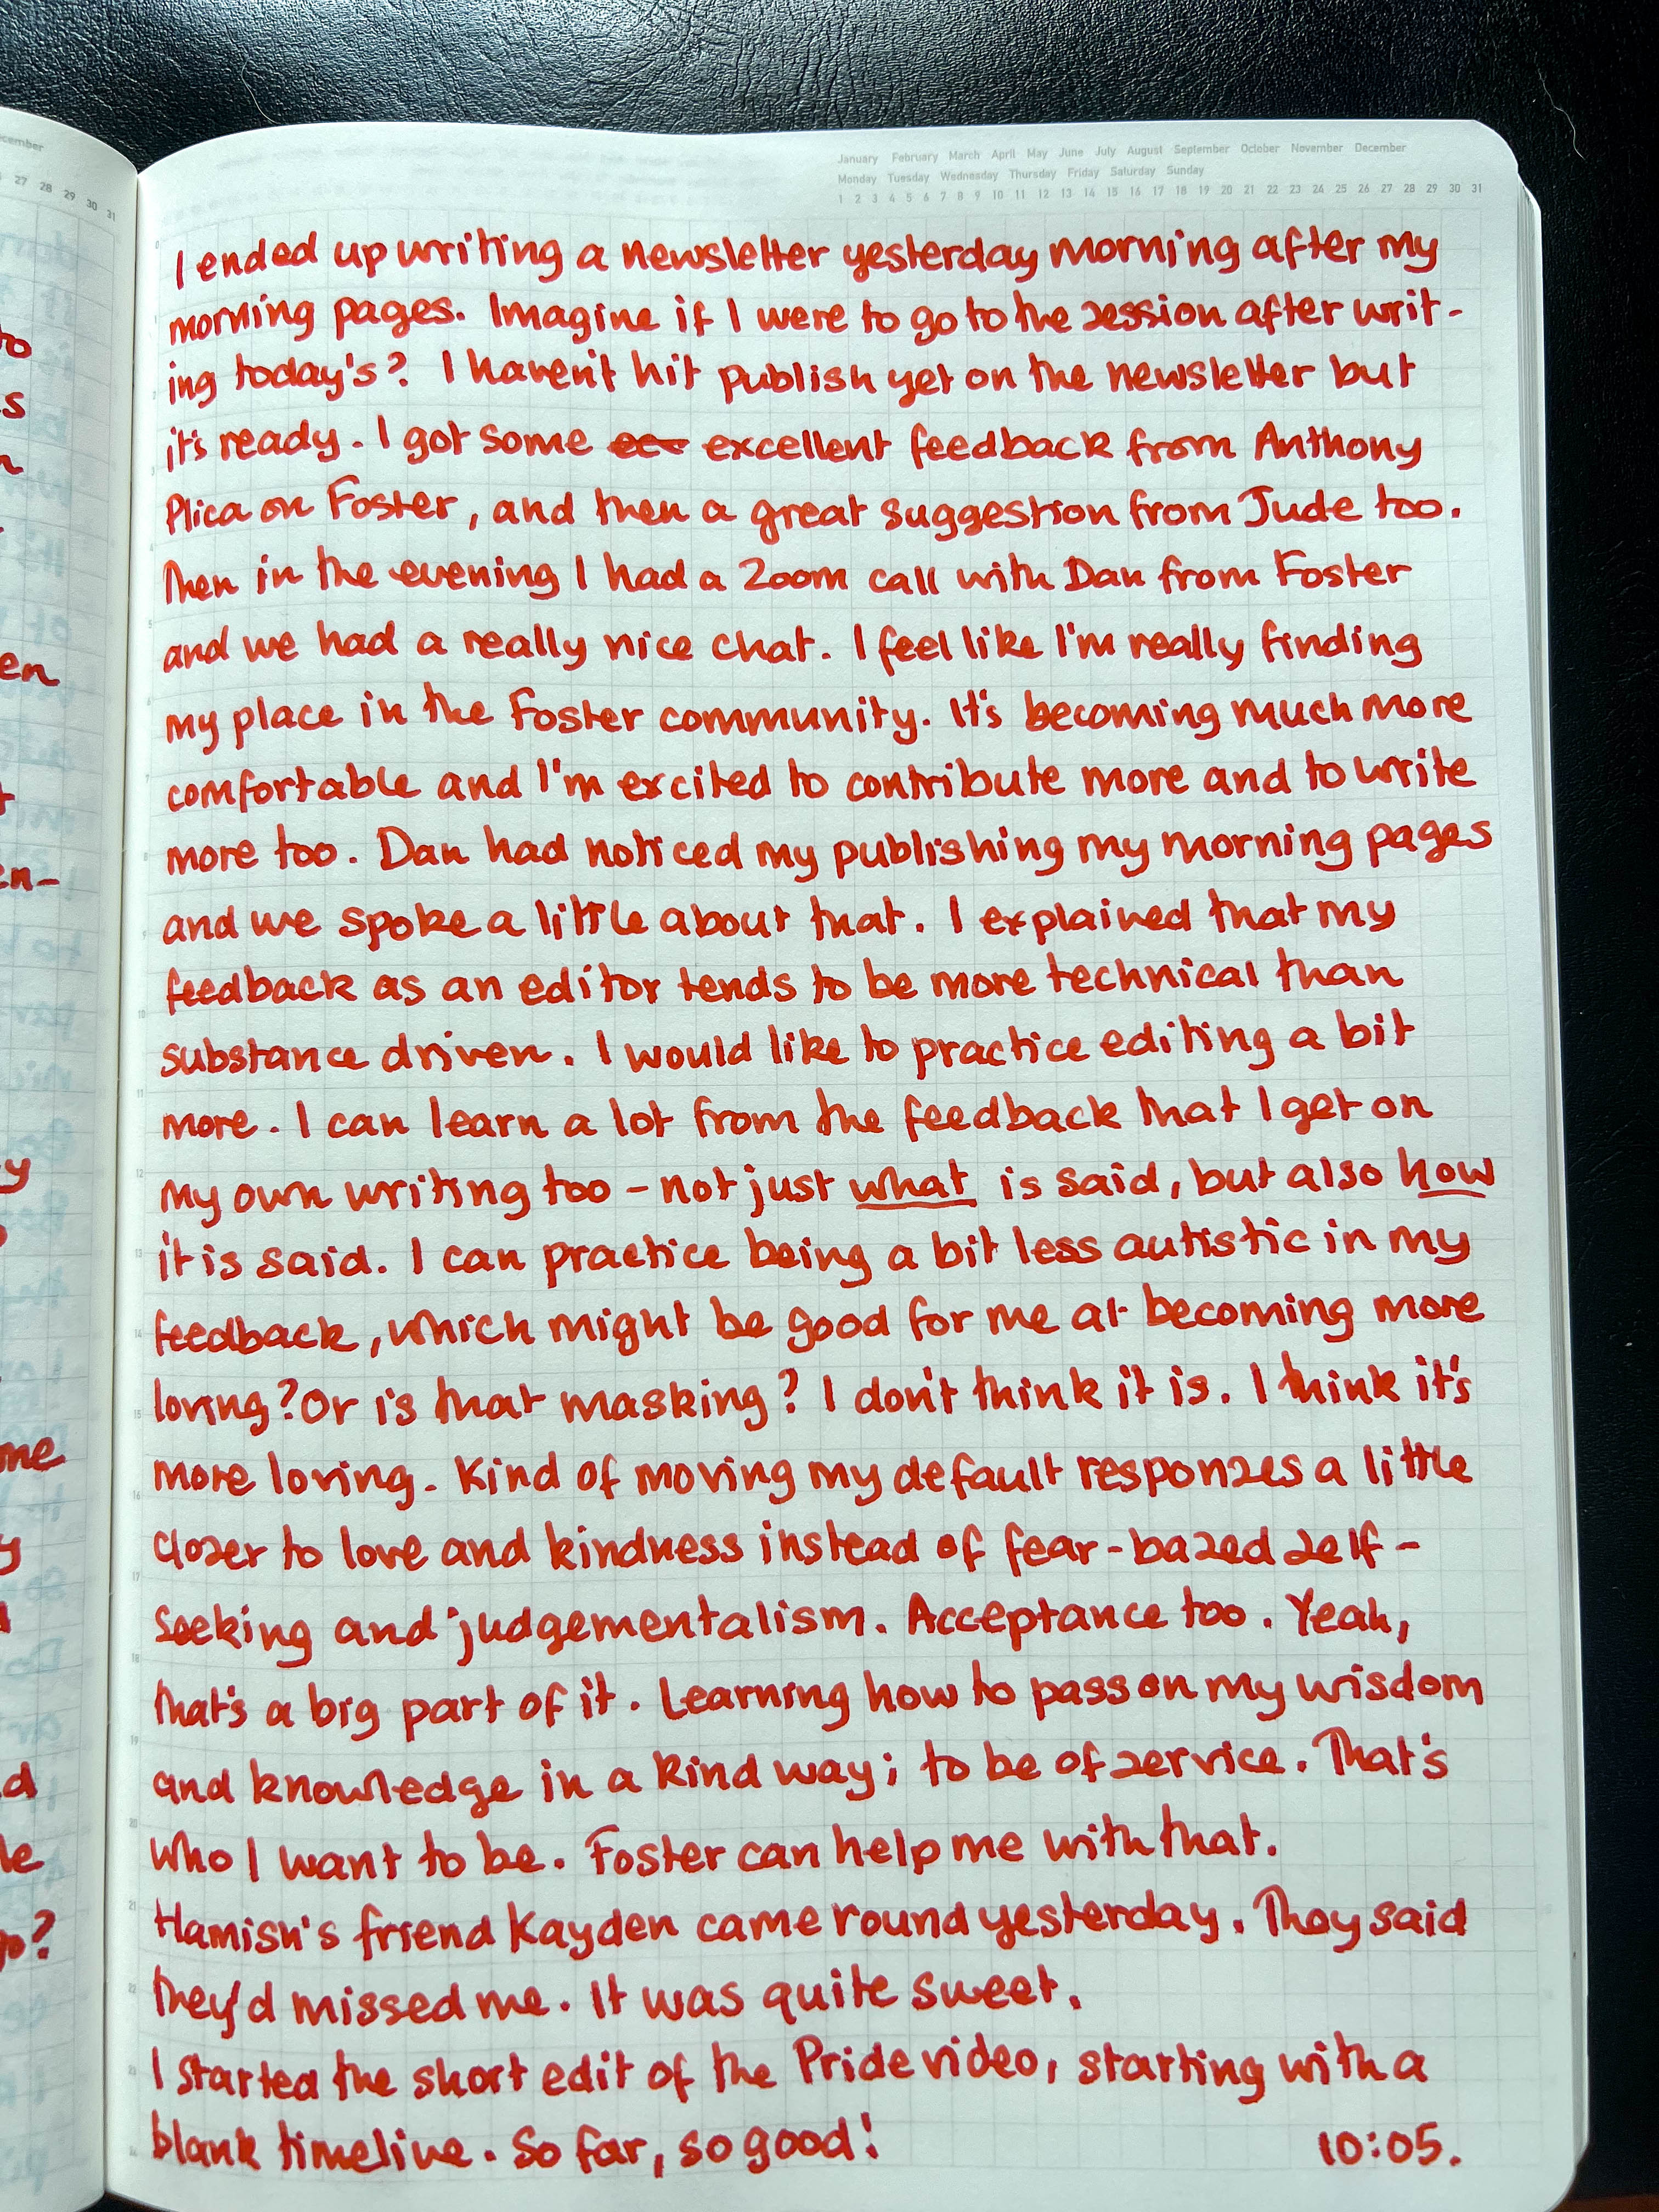 cember
27 28 29 30 31
January February March April May June July August September October November December
Monday Tuesday Wednesday Thursday Friday Saturday Sunday
1 2 3 4 5 6 7 8 9 10 11 12 13 14 15 16 17 18 19 20 21 22 23 24 25 26 27 28 29 30 31
I ended up writing a newsletter yesterday morning after my
morning pages. Imagine if I were to go to the session after writ-
ing today's? I haven't hit publish yet on the newsletter but
it's ready. I got some excellent feedback from Anthony
Plica on Foster, and then a great suggestion from Jude too.
Then in the evening I had a Zoom call with Dan from Foster
and we had a really nice chat. I feel like I'm really finding
my place in the Foster community. It's becoming much more
comfortable and I'm excited to contribute more and to write
more too. Dan had noticed my publishing my morning pages
and we spoke a little about that. I explained that my
feedback as an editor tends to be more technical than
substance driven. I would like to practice editing a bit
more. I can learn a lot from the feedback that I get on
my own writing too - not just what is said, but also how
it is said. I can practice being a bit less autistic in my
feedback, which might be good for me at becoming more
loving? Or is that masking? I don't think it is. I think it's
more loving. Kind of moving my default responses a little
closer to love and kindness instead of fear-based self-
seeking and judgementalism. Acceptance too. Yeah,
that's a big part of it. Learning how to pass on my wisdom
and knowledge in a kind way; to be of service. That's
who I want to be. Foster can help me with that.
Hamish's friend Kayden came round yesterday. They said
they'd missed me. It was quite sweet.
I started the short edit of the Pride video, starting with a
blank timeline. So far, so good!
10:05.